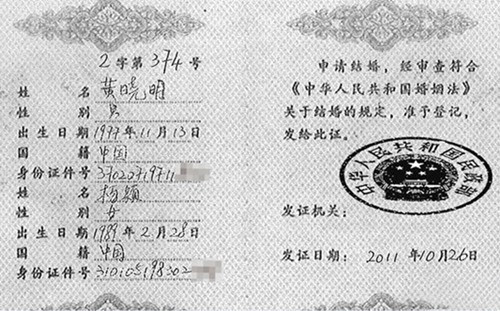 2字第374号
姓名 黄晓明
性别 男
出生日期 1977年11月13日
国籍 中国
身份证件号 370227197711
姓名 杨颖
性别 女
出生日期 1989年2月28日
国籍 中国
身份证件号
申请结婚，经审查符合
《中华人民共和国婚姻法》
关于结婚的规定，准予登记，
发给此证。
中华人民共和国民政部
发证机关：
发证日期：2011年10月26日